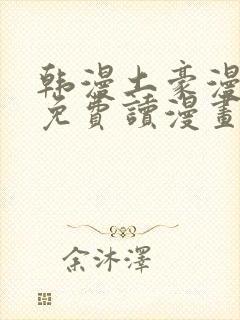 韩漫土豪漫
免費讀漫畫
余沐澤